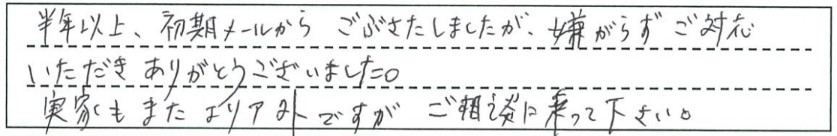 半年以上、初期メールから ごぶさたしましたが、嫌がらずご対応
いただき ありがとうございました。
実家もまたエリア外ですが ご相談に乗って下さい。